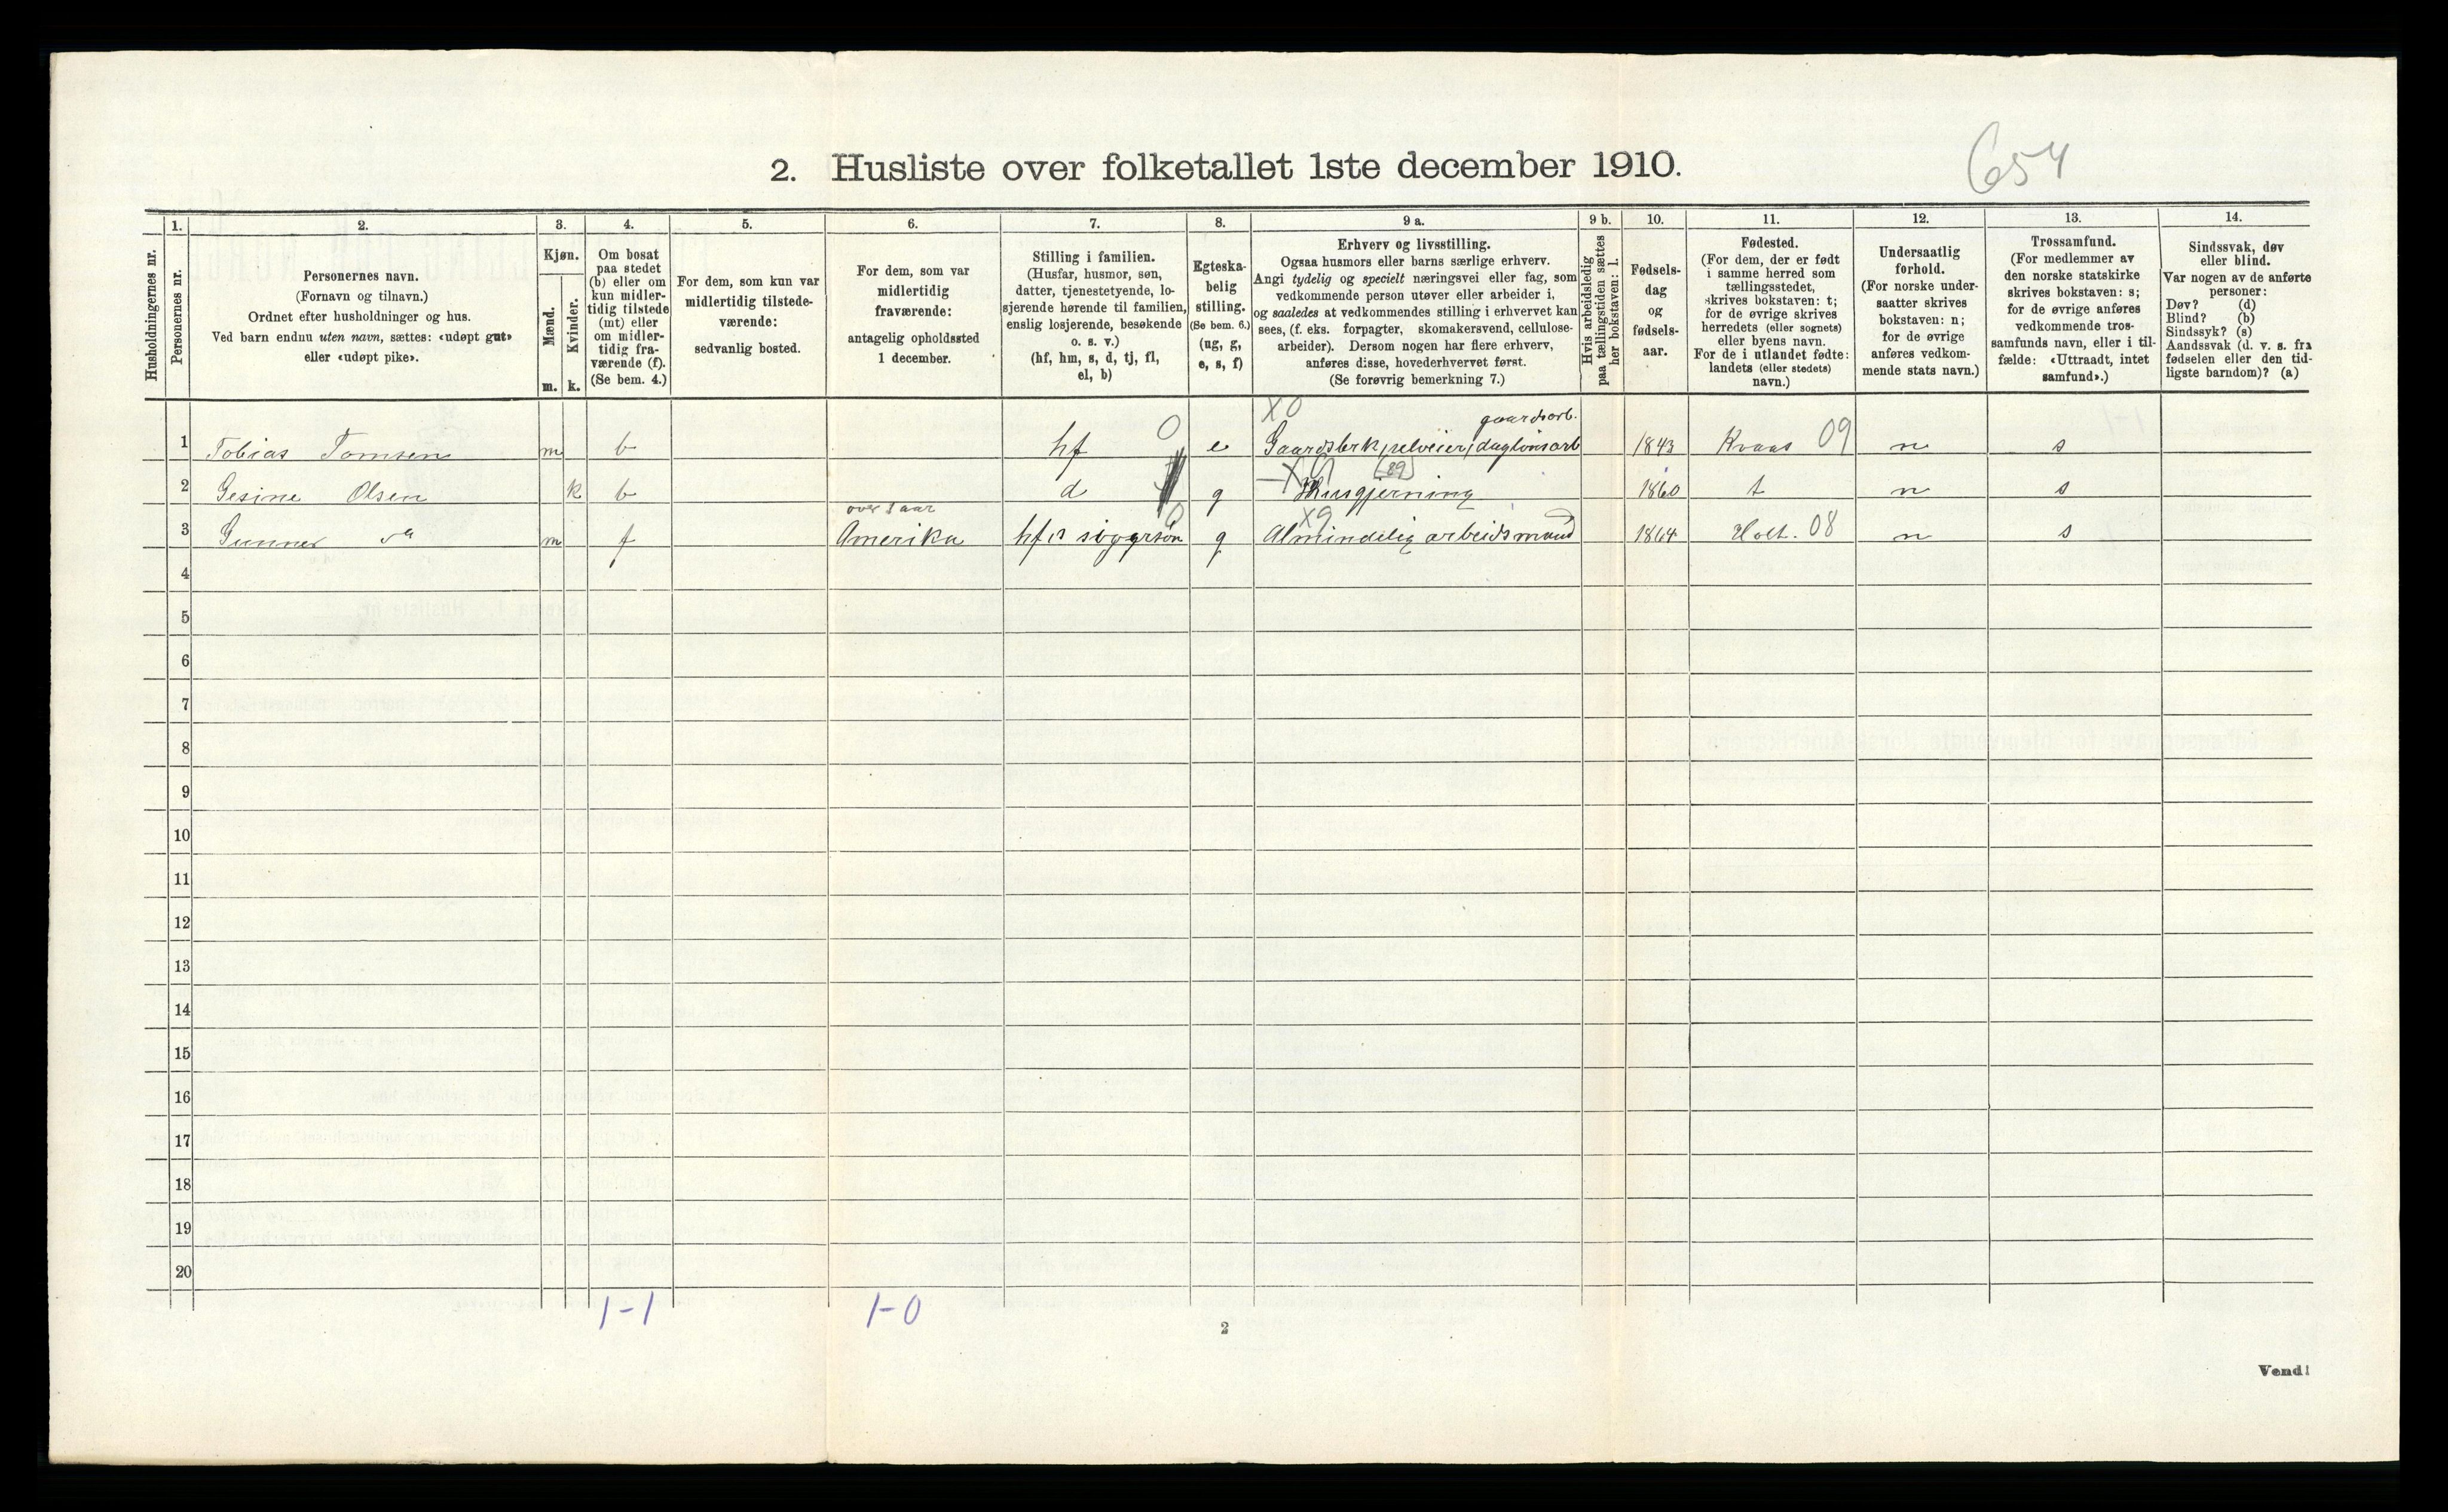 654
2. Husliste over folketallet 1ste december 1910.
Husholdningernes nr.
1.
Personernes nr.
2.
Personernes navn.
(Fornavn og tilnavn.)
Ordnet efter husholdninger og hus.
Ved barn endnu uten navn, sættes: «udøpt gut»
eller «udøpt pike».
3.
Kjøn.
Mænd.
Kvinder.
m. k.
4.
Om bosat
paa stedet
(b) eller om
kun midler-
tidig tilstede
(mt) eller
om midler-
tidig fra-
værende (f).
(Se bem. 4.)
5.
For dem, som kun var
midlertidig tilstede-
værende:
sedvanlig bosted.
6.
For dem, som var
midlertidig
fraværende:
antagelig opholdssted
1 december.
7.
Stilling i familien.
(Husfar, husmor, søn,
datter, tjenestetyende, lo-
sjerende hørende til familien,
enslig losjerende, besøkende
o. s. v.)
(hf, hm, s, d, tj, fl,
el, b)
8.
Egteska-
belig
stilling.
(Se bem. 6.)
(ug, g,
e, s, f)
9 a.
Erhverv og livsstilling.
Ogsaa husmors eller barns særlige erhverv.
Angi tydelig og specielt næringsvei eller fag, som
vedkommende person utøver eller arbeider i,
og saaledes at vedkommendes stilling i erhvervet kan
sees, (f. eks. forpagter, skomakersvend, cellulose-
arbeider). Dersom nogen har flere erhverv,
anføres disse, hovederhvervet først.
(Se forøvrig bemerkning 7.)
9 b.
Hvis arbeidsledig
paa tællingstiden sættes
her bokstaven: l.
10.
Fødsels-
dag
og
fødsels-
aar.
11.
Fødested.
(For dem, der er født
i samme herred som
tællingsstedet,
skrives bokstaven: t;
for de øvrige skrives
herredets (eller sognets)
eller byens navn.
For de i utlandet fødte:
landets (eller stedets)
navn.)
12.
Undersaatlig
forhold.
(For norske under-
saatter skrives
bokstaven: n;
for de øvrige
anføres vedkom-
mende stats navn.)
13.
Trossamfund.
(For medlemmer av
den norske statskirke
skrives bokstaven: s;
for de øvrige anføres
vedkommende tros-
samfunds navn, eller i til-
fælde: «Uttraadt, intet
samfund».)
14.
Sindssvak, døv
eller blind.
Var nogen av de anførte
personer:
Døv? (d)
Blind? (b)
Sindssyk? (s)
Aandssvak (d. v. s. fra
fødselen eller den tid-
ligste barndom)? (a)
X0 gaardsarb.
1 Tobias Tomsen m b hf 0 e Gaardsbrk, selveier, daglønsarb 1843 09 n s
X9 [29]
2 Gesine Olsen k b d g Husgjerning 1860 t n s
over 1 aar 0 X9
3 Gunner do m f Amerika hf's g Almindelig arbeidsmand 1864 Holt. 08 n s
4
5
6
7
8
9
10
11
12
13
14
15
16
17
18
19
20
1-1 1-0
2
Vend!